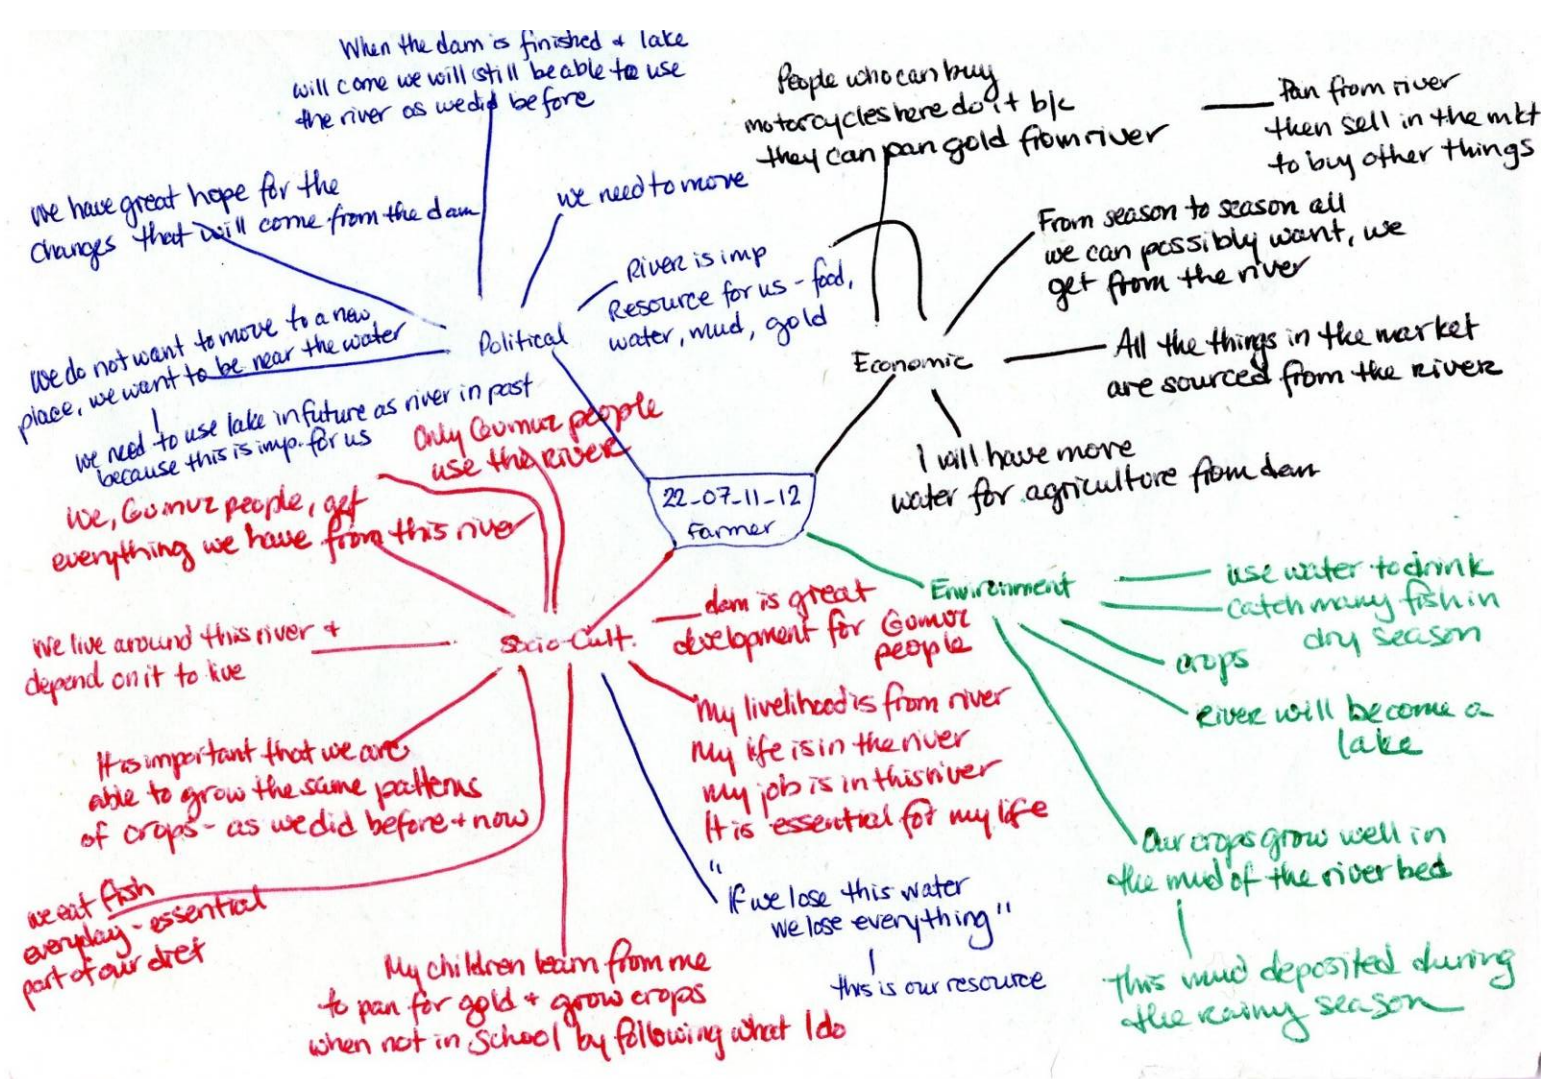 When the dam is finished + lake
will come we will still be able to use
the river as we did before
we have great hope for the
changes that will come from the dam
we need to move
River is imp
Resource for us - food,
water, mud, gold
we do not want to move to a new
place, we want to be near the water
we need to use lake in future as river in past
because this is imp. for us
Political
People who can buy
motorcycles here do it b/c
they can pan gold from river
Pan from river
then sell in the mkt
to buy other things
From season to season all
we can possibly want, we
get from the river
All the things in the market
are sourced from the river
Economic
I will have more
water for agriculture from dam
22-07-11-12
Farmer
Only Gumuz people
use the river
We, Gumuz people, get
everything we have from this river
we live around this river +
depend on it to live
Socio-Cult.
dam is great
development for Gumuz
people
It is important that we are
able to grow the same patterns
of crops - as we did before + now
My livelihood is from river
My life is in the river
My job is in this river
It is essential for my life
we eat fish
everyday - essential
part of our diet
My children learn from me
to pan for gold + grow crops
when not in school by following what I do
"If we lose this water
we lose everything"
this is our resource
Environment
use water to drink
catch many fish in
dry season
crops
River will become a
lake
Our crops grow well in
the mud of the river bed
This mud deposited during
the rainy season